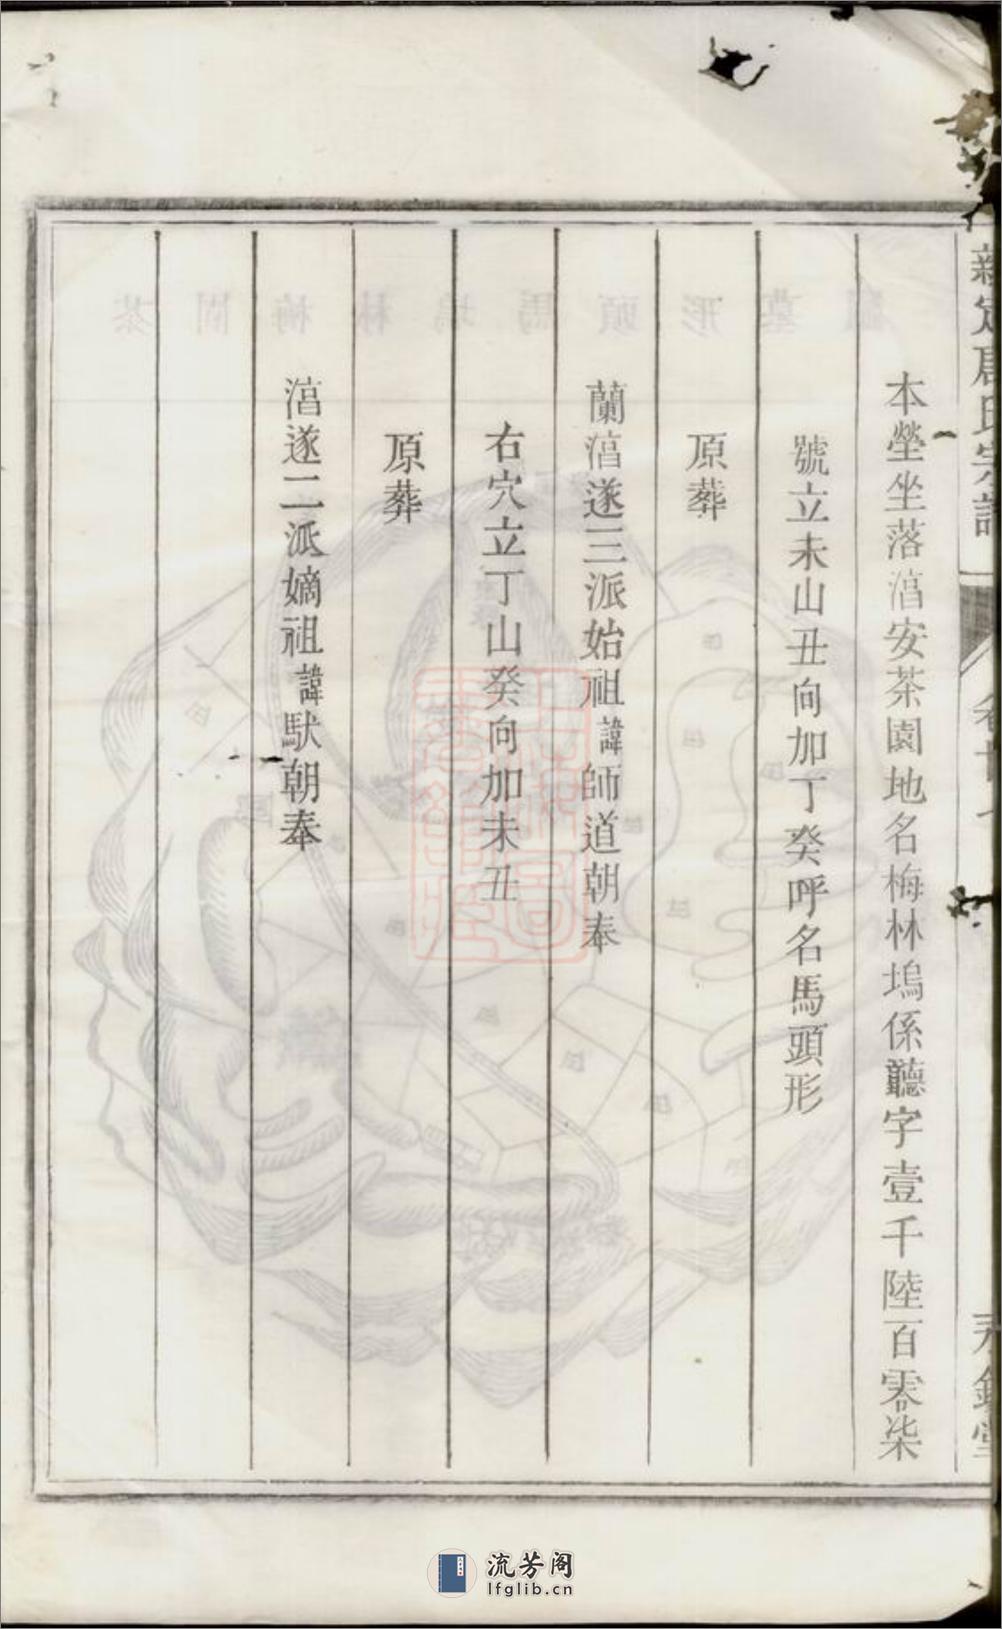 新定周氏宗譜
卷十
永錦堂
本塋坐落湻安茶園地名梅林塢係聽字壹千陸百零柒
號立未山丑向加丁癸呼名馬頭形
原葬
蘭湻遂三派始祖諱師道朝奉
右穴立丁山癸向加未丑
原葬
湻遂二派嫡祖諱馱朝奉
流芳阁
lfglib.cn